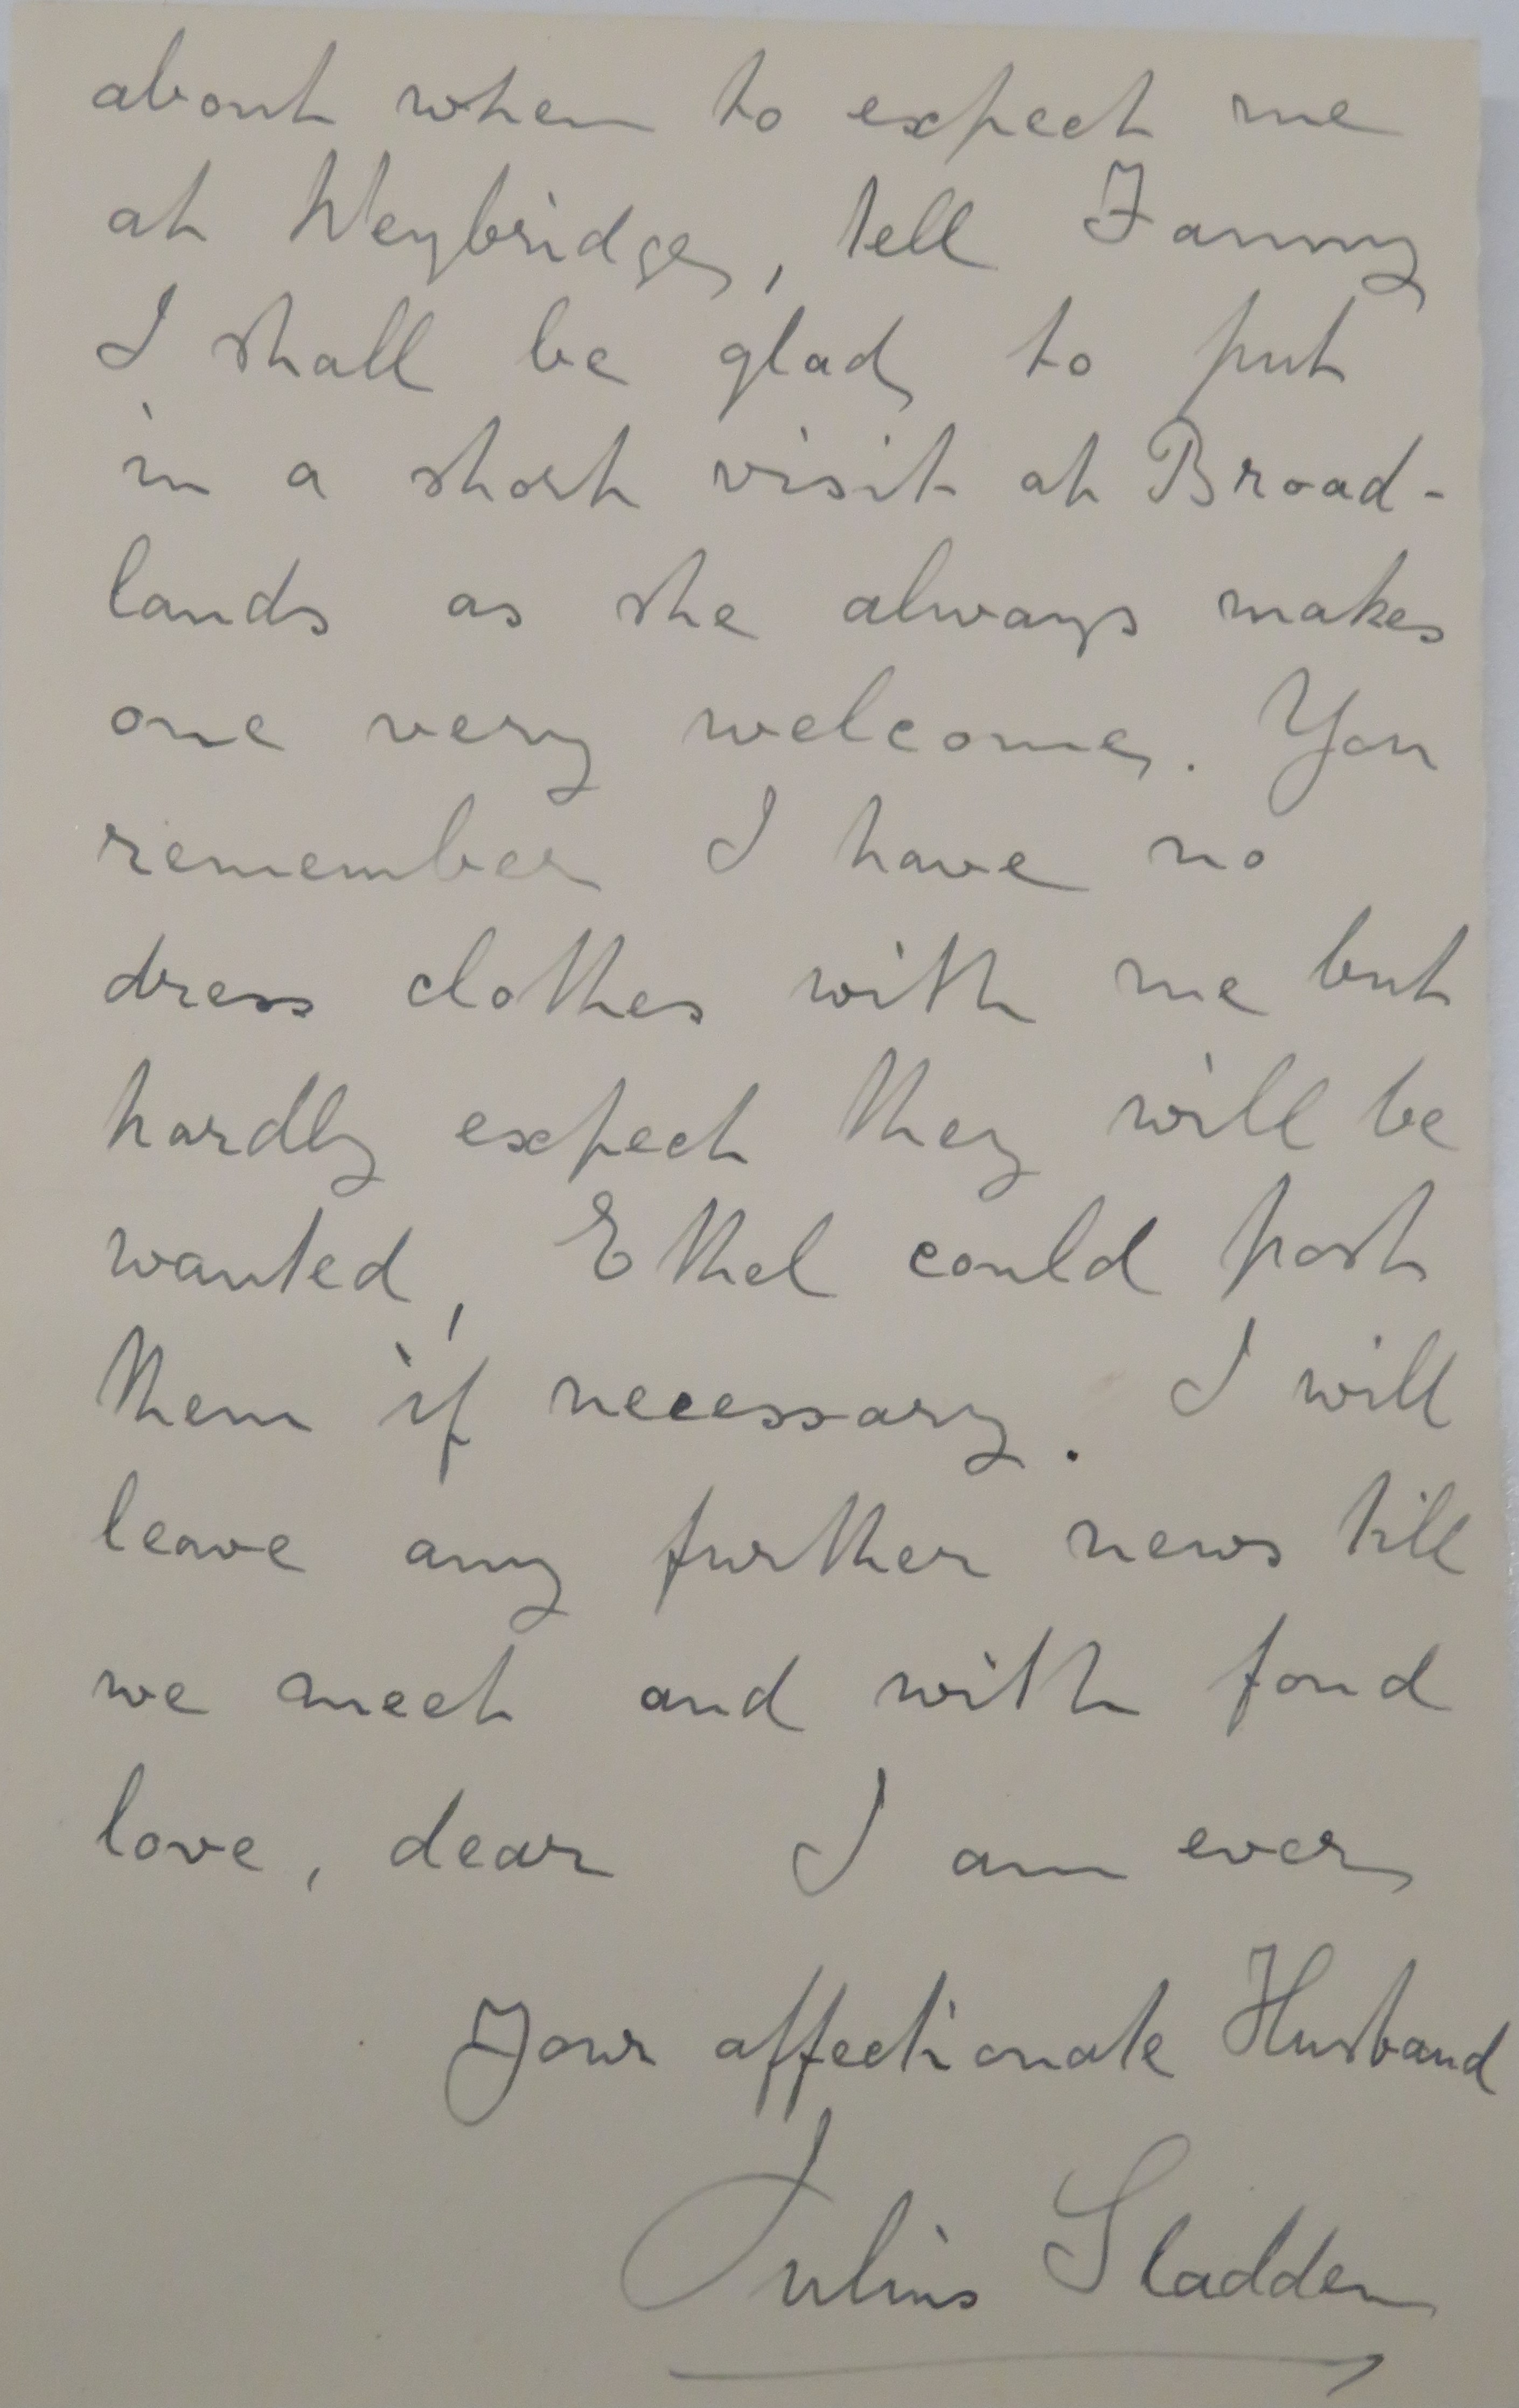 about when to expect me
at Weybridge, tell Fanny
I shall be glad to put
in a short visit at Broad-
lands as she always makes
one very welcome. You
remember I have no
dress clothes with me but
hardly expect they will be
wanted, Ethel could post
them if necessary. I will
leave any further news till
we meet and with fond
love, dear I am ever
Your affectionate Husband
Julius Sladden